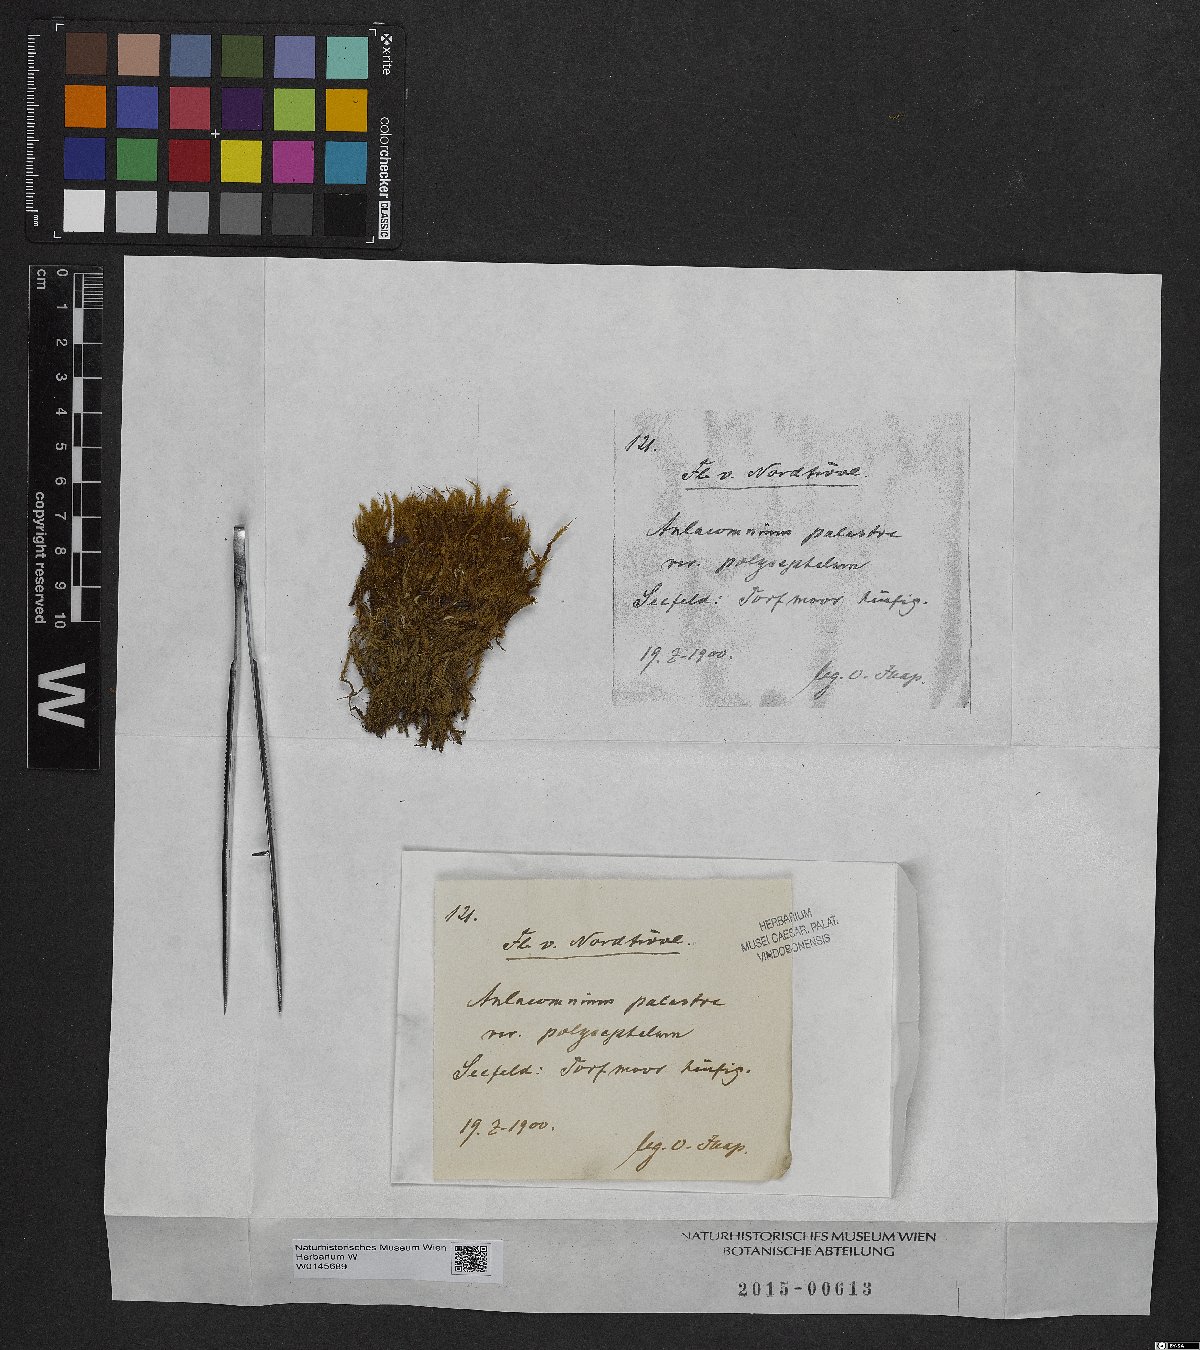 x-rite
colorchecker CLASSIC
mm
0 1 2 3 4 5 6 7 8 9 10
cm
copyright reserved
W
121.
Fl. v. Nordtirol.
Aulacomnium palustre
var. polycephalum
Seefeld: Torfmoor häufig.
19.7.1900.
leg. O. Jaap.
121.
Fl. v. Nordtirol.
Aulacomnium palustre
var. polycephalum
Seefeld: Torfmoor häufig.
19.7.1900.
leg. O. Jaap.
HERBARIUM
MUSEI CAESAR. PALAT.
VINDOBONENSIS
Naturhistorisches Museum Wien
Herbarium W
W0145689
NATURHISTORISCHES MUSEUM WIEN
BOTANISCHE ABTEILUNG
2015-00613
BY-SA